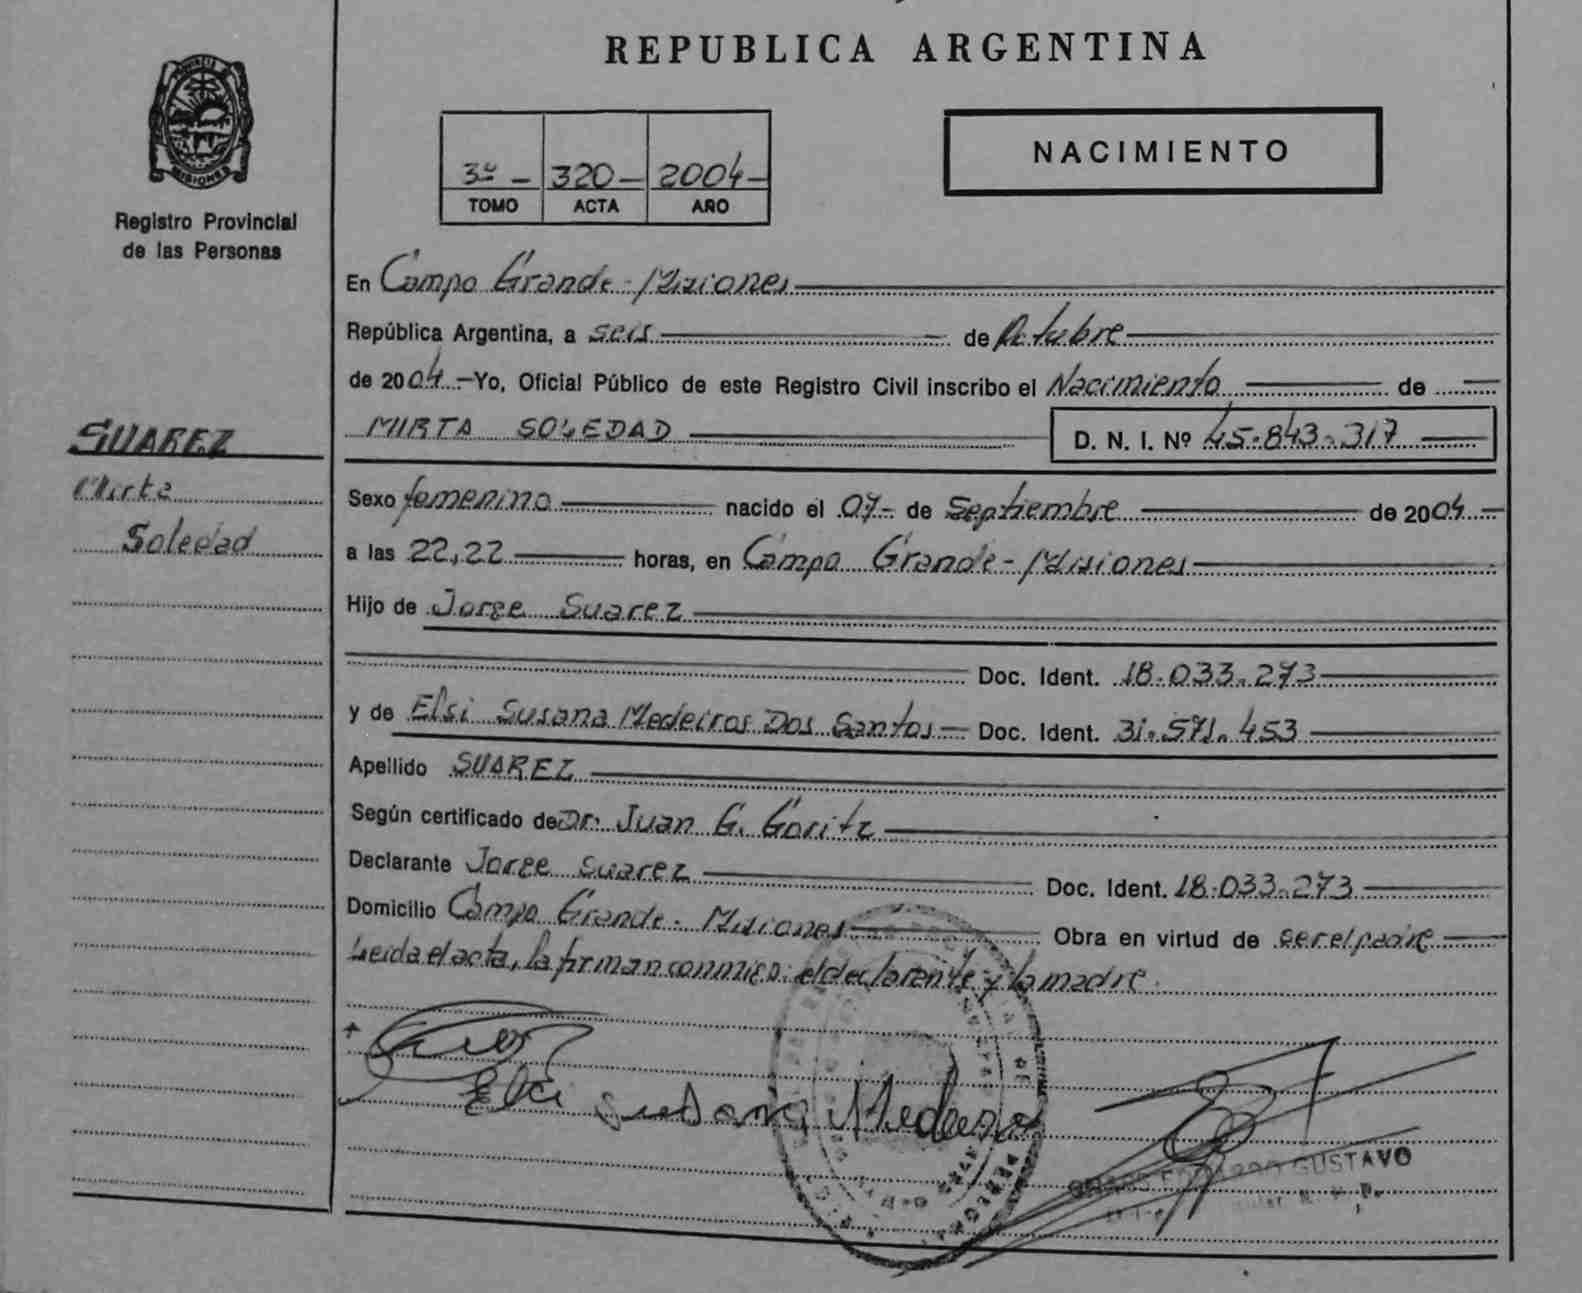 REPUBLICA ARGENTINA
PROVINCIA DE
MISIONES
Registro Provincial
de las Personas
3º - 320- 2004-
TOMO ACTA AÑO
NACIMIENTO
En Campo Grande - Misiones
República Argentina, a seis de Octubre
de 2004.-Yo, Oficial Público de este Registro Civil inscribo el Nacimiento de
MIRTA SOLEDAD D. N. I. Nº 45.843.317
SUAREZ
Mirta
Soledad
Sexo femenino nacido el 07- de Septiembre de 2004
a las 22,22 horas, en Campo Grande - Misiones
Hijo de Jorge Suarez
Doc. Ident. 18.033.273
y de Elsi Susana Medeiros Dos Santos - Doc. Ident. 31.571.453
Apellido SUAREZ
Según certificado de Dr. Juan G. Goritz
Declarante Jorge Suarez Doc. Ident. 18.033.273
Domicilio Campo Grande - Misiones Obra en virtud de ser el padre
Leida el acta, la firman conmigo: el declarante y la madre.
Elci Susana Medeiro
GUSTAVO